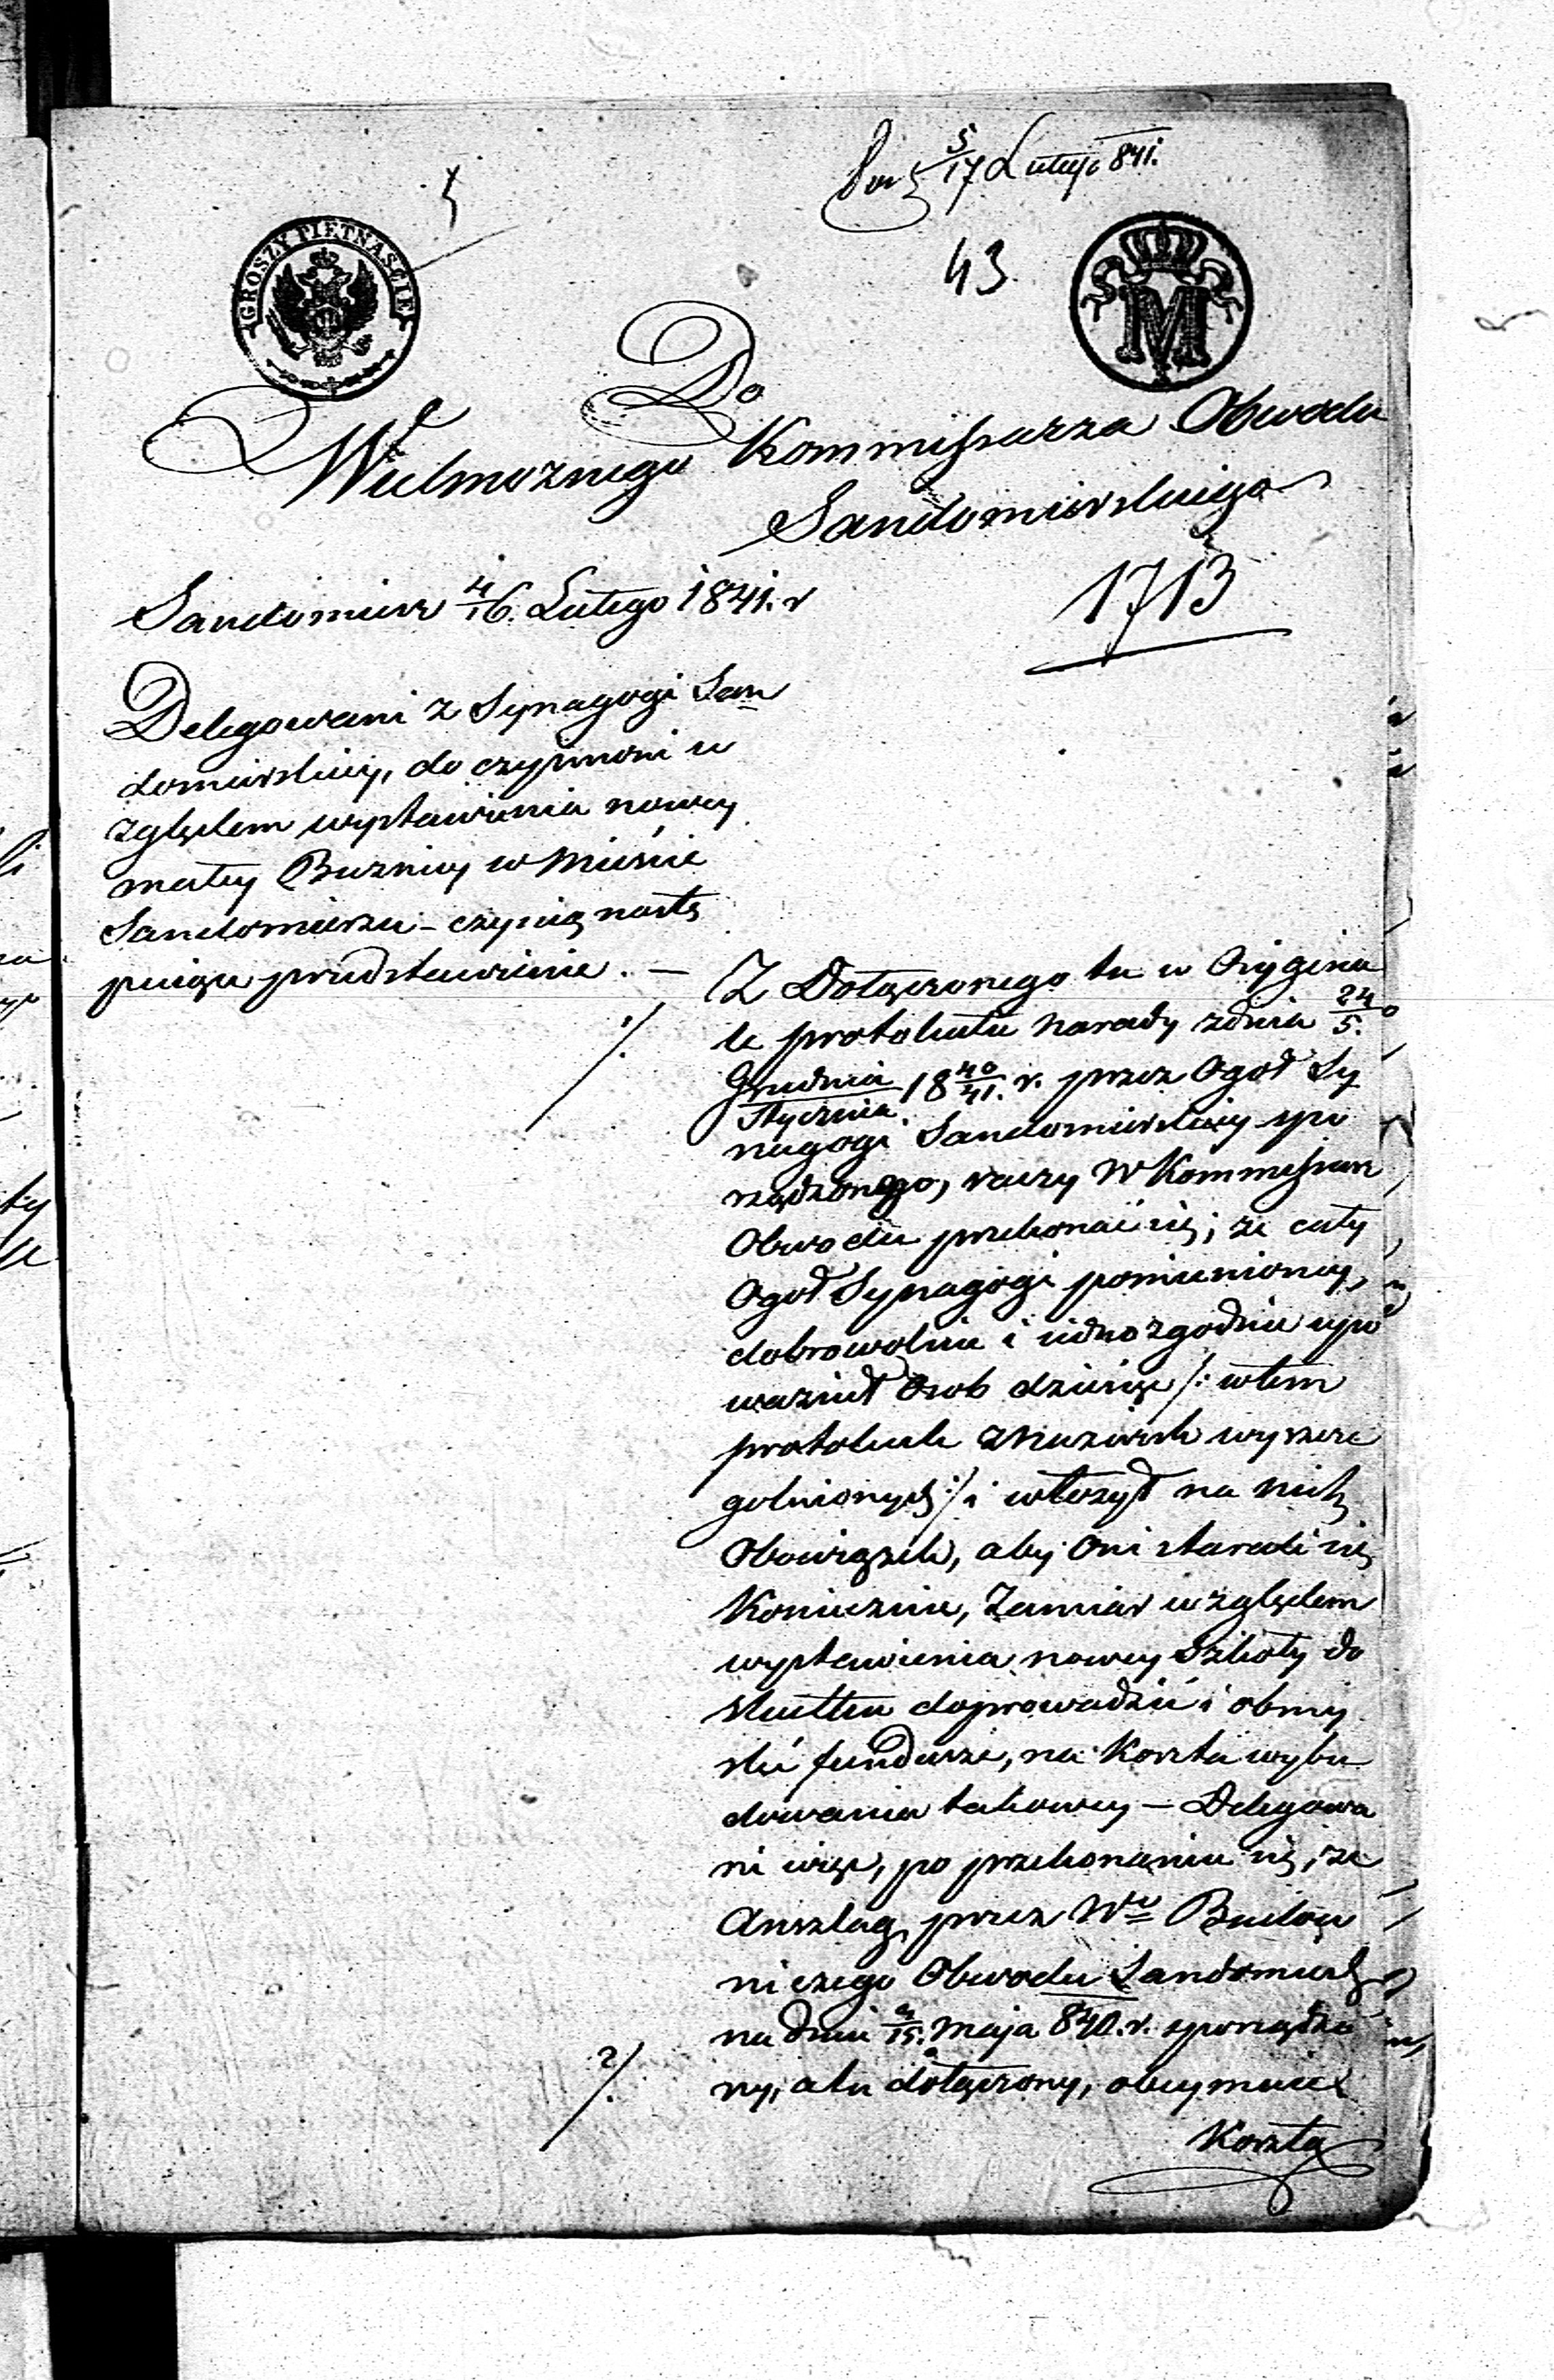 5/17 Lutego 841.
43
GROSZY PIĘTNAŚCIE
M
Do
Wielmożnego Kommissarza Obwodu
Sandomirskiego
1713
Sandomierz 4/16. Lutego 1841. r
Delegowani z Synagogi San
domirskiey, do czynnosci w
zględem wystawienia nowey
małey Buznicy w Mieście
Sandomierzu – czynią nastę
puiące przedstawienie. –
1/.
Z Dołączonego tu w Orygina
le protokułu narady zdnia 24/5.
Grudnia/Stycznia 18 40/41. r. przez Ogoł Sy
nagogi Sandomirskiey spo
rządzonego, raczy W Kommissarz
Obwodu przekonać się; że cały
Ogoł Synagogi pomienioney,
dobrowolnie i iednozgodnie upo
ważnił Osob dziesięc /: wtem
protokule znazwisk wyszcze
golnionych :/ i włożył na nich
Obowiązek, aby Oni starali się
Koniecznie, Zamiar względem
wystawienia nowey Szkoły do
skutku doprowadzić i obmy
slić fundusze, na Koszta wybu
dowania takowey – Delegowa
ni więc, po przekonaniu się, że
Anszlag przez Wo Budow
niczego Obwodu Sandomirsk
na dniu 3/15. Maja 840. r. sporządzo
ny, a tu dołączony, obeymuie
2/.
Koszta